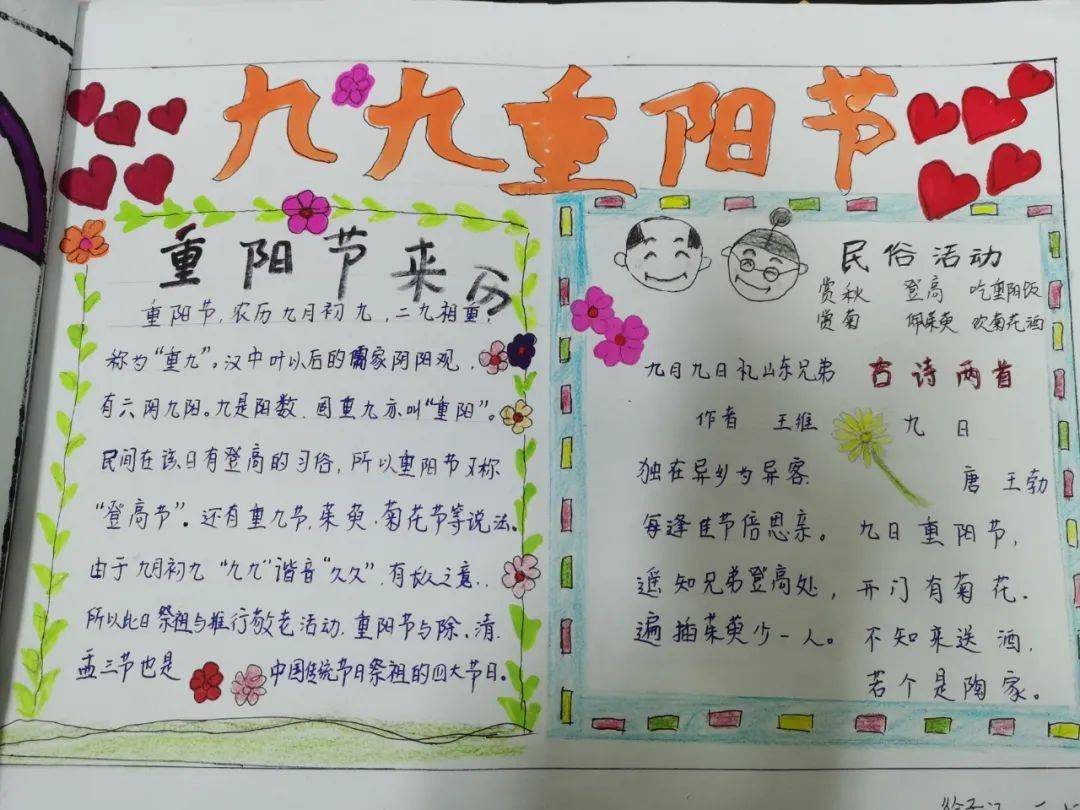 九九重阳节
重阳节来历
重阳节,农历九月初九,二九相重,
称为“重九”。汉中叶以后的儒家阴阳观,
有六阴九阳。九是阳数,固重九亦叫“重阳”。
民间在该日有登高的习俗,所以重阳节又称
“登高节”。还有重九节,茱萸.菊花节等说法。
由于九月初九“九九”谐音“久久”,有长久之意.
所以此日祭祖与推行敬老活动.重阳节与除、清.
盂三节也是中国传统节日祭祖的四大节日。
民俗活动
赏秋 登高 吃重阳饭
赏菊 佩茱萸 饮菊花酒
古诗两首
九月九日礼山东兄弟
作者 王维
独在异乡为异客
每逢佳节倍思亲。
遥知兄弟登高处,
遍插茱萸少一人。
九日
唐 王勃
九日重阳节,
开门有菊花.
不知来送酒,
若个是陶家。